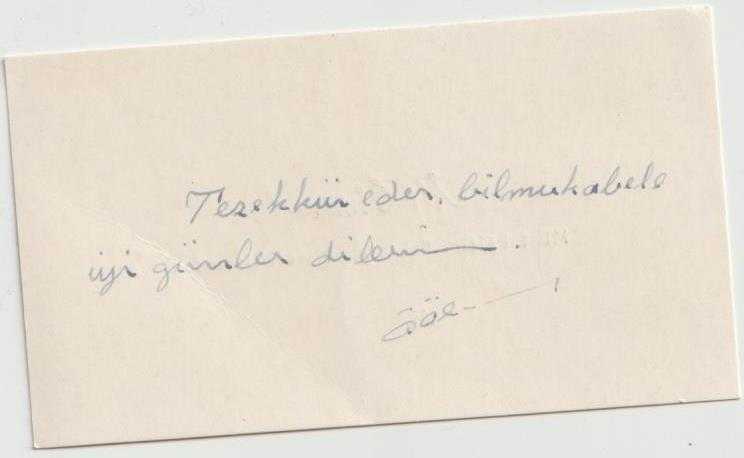 Teşekkür eder, bilmukabele
iyi günler dilerim.